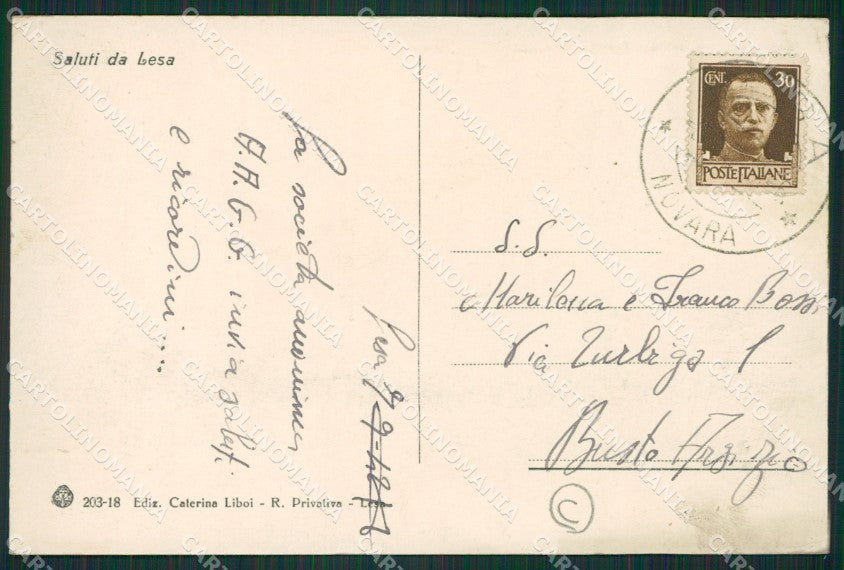 Saluti da Lesa
La società anonima
A.A.G.G. invia saluti
e ricordini....
Lesa
CENT. 30
POSTE ITALIANE
NOVARA
S.S.
Marilena e Franco Bossi
Via
Busto Arsizio
C
203-18 Ediz. Caterina Liboi - R. Privativa - Lesa
CARTOLINOMANIA